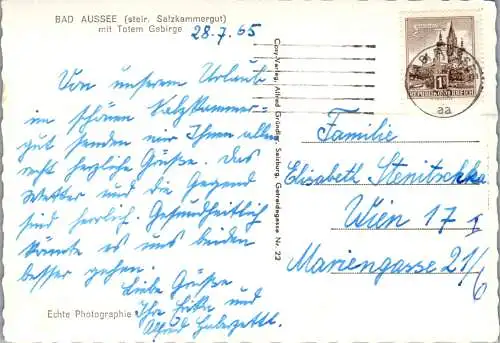 BAD AUSSEE (steir. Salzkammergut)
mit Totem Gebirge
28.7.65
Von unserem Urlaub
im schönen Salzkammer-
gut senden wir Ihnen allen
recht herzliche Grüsse. Das
Wetter und die Gegend
sind herrlich. Gesundheitlich
könnte es uns beiden
besser gehen.
Liebe Grüße
Ihre und
Alfred
Echte Photographie
Cosy-Verlag, Alfred Gründler, Salzburg, Getreidegasse Nr. 22
REPUBLIK ÖSTERREICH
aa
Familie
Elizabeth Stenitschka
Wien 17
Mariengasse 21/6